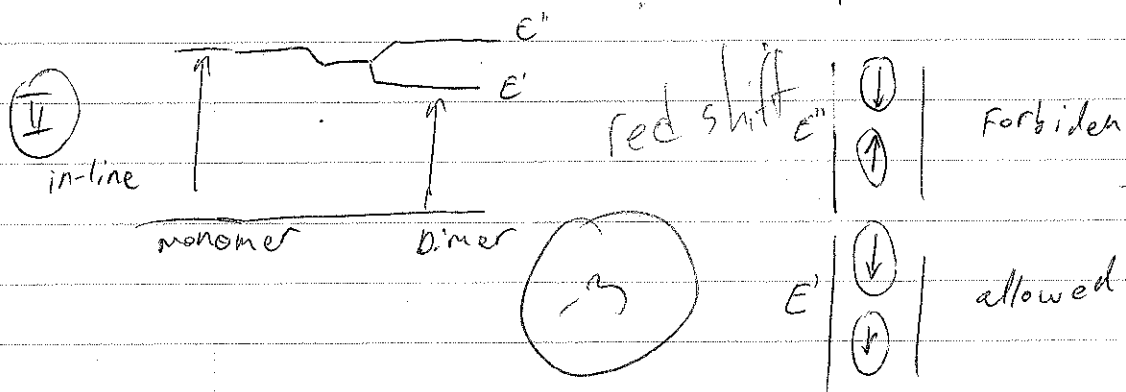 E"
E'
II
in-line
Monomer
Dimer
red shift
E"
Forbiden
E'
allowed